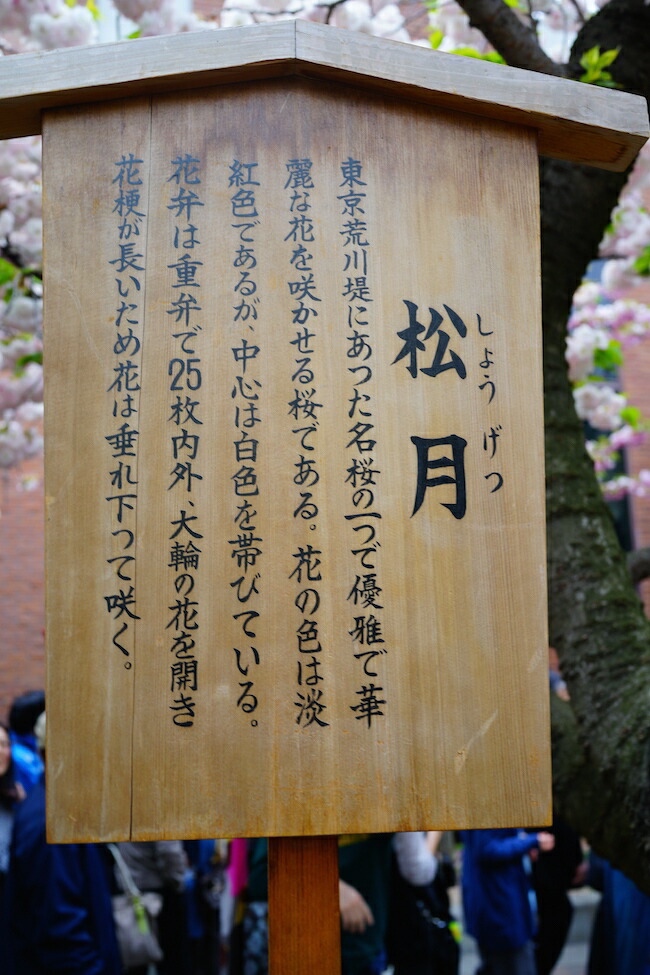 しょうげつ
松月
東京荒川堤にあった名桜の一つで優雅で華
麗な花を咲かせる桜である。花の色は淡
紅色であるが、中心は白色を帯びている。
花弁は重弁で25枚内外、大輪の花を開き
花梗が長いため花は垂れ下って咲く。